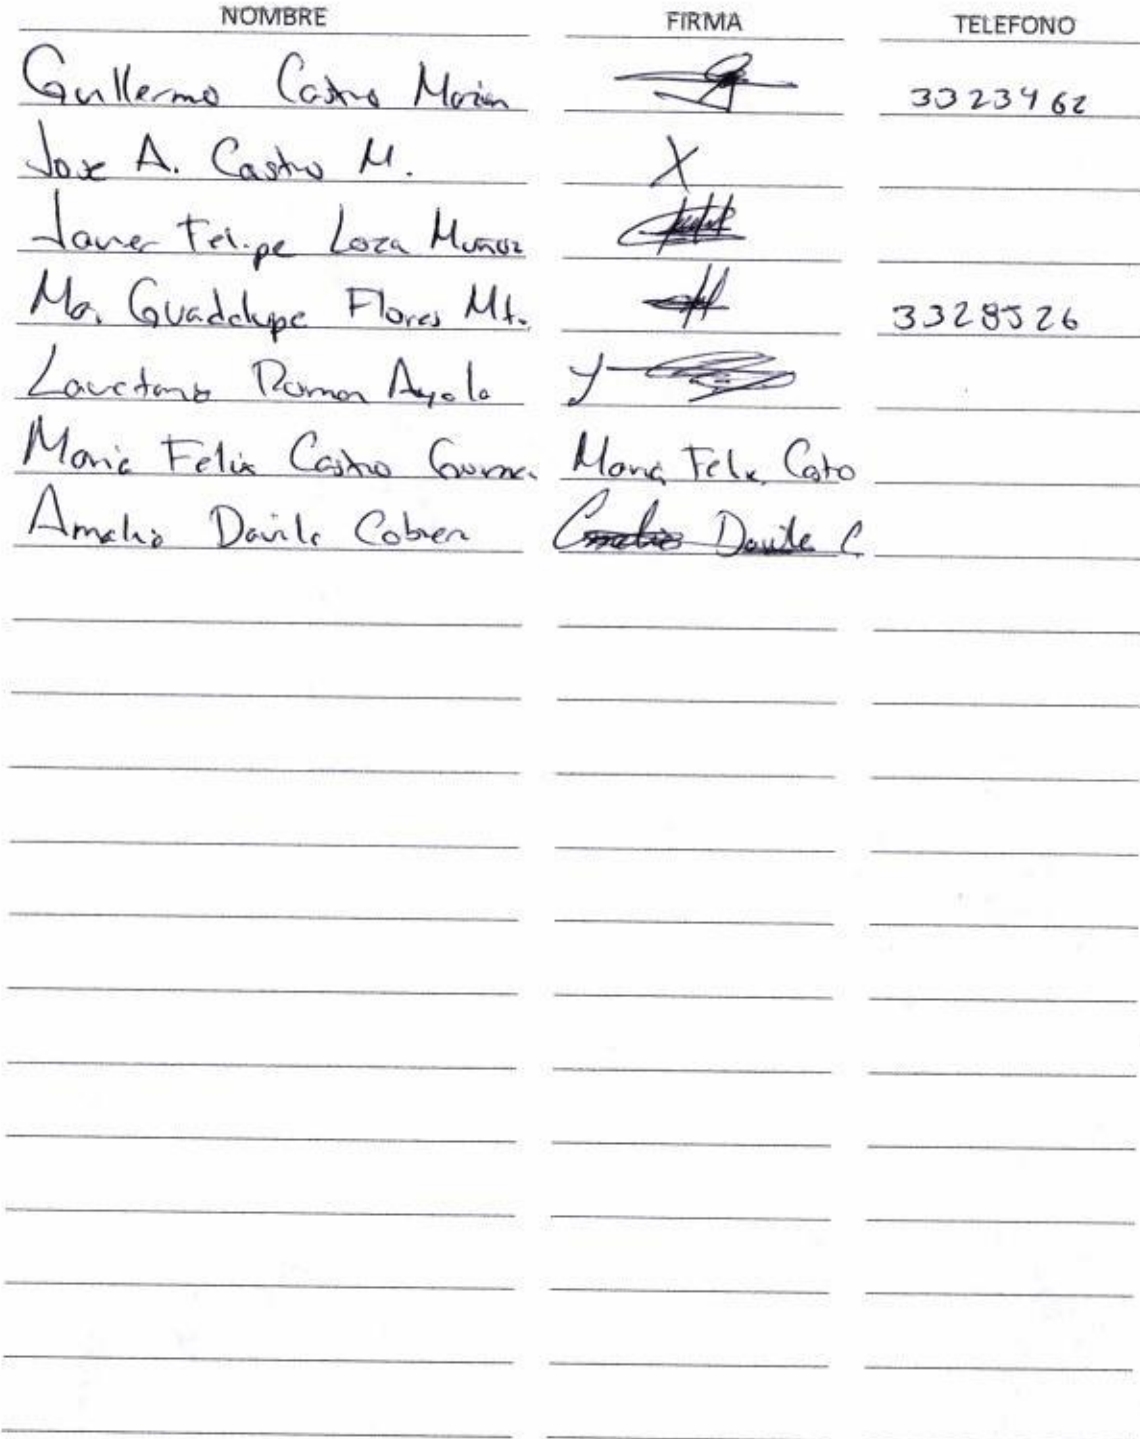 NOMBRE FIRMA TELEFONO
Guillermo Castro 3323462
Jose A. Castro M. X
Javier Felipe Loza Muñoz
Ma. Guadalupe Flores Mt. 3328526
Ramon Ayala
Maria Felix Castro Maria Felix Castro
Amelia Davila Davila C